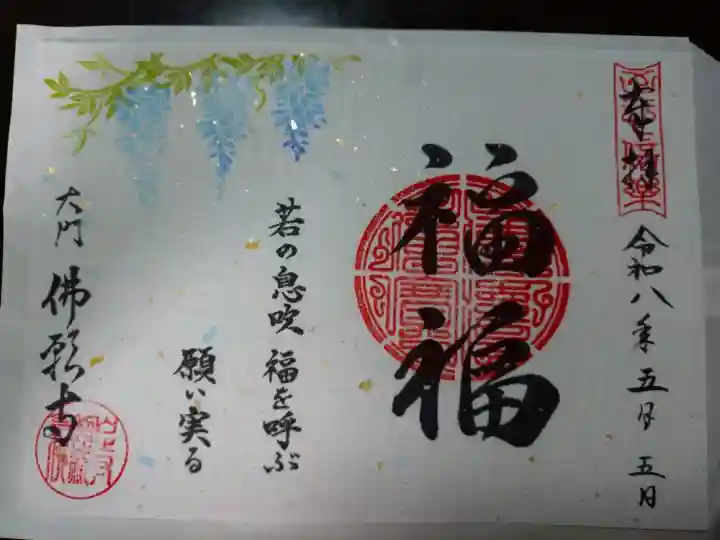 奉拝
令和八年五月五日
福福
若の息吹 福を呼ぶ
願い実る
大門 佛願寺